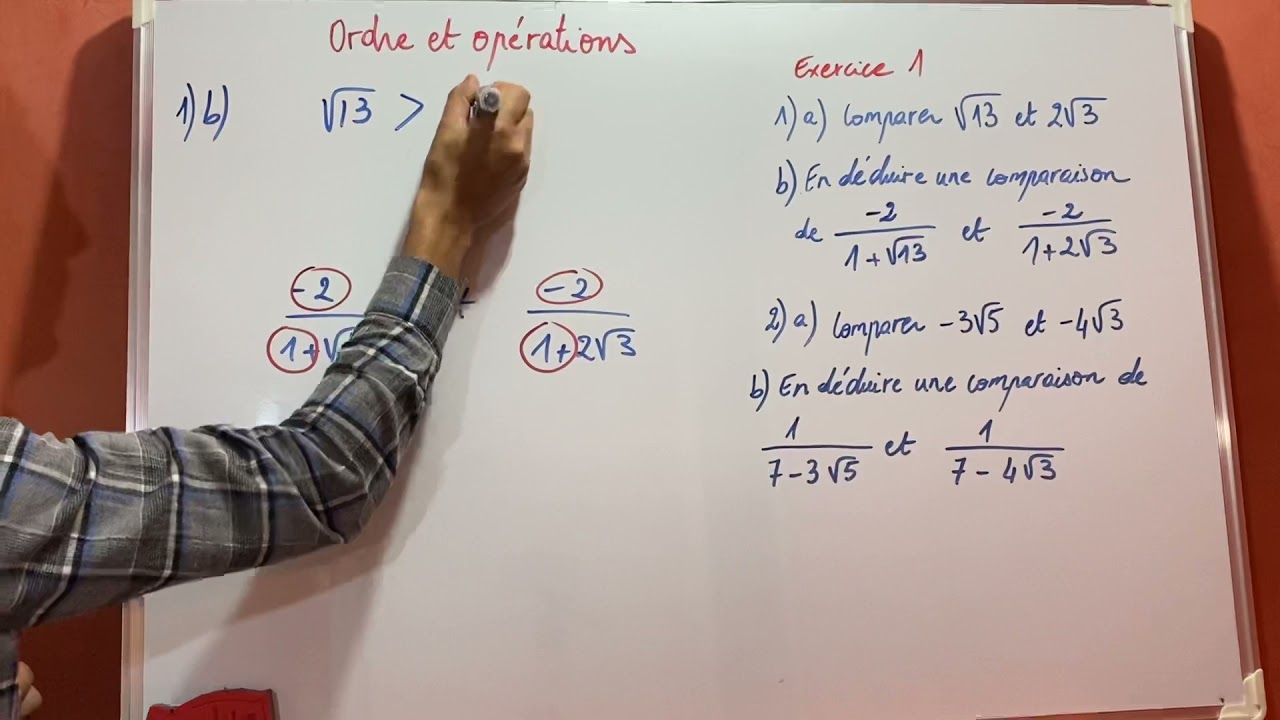 Ordre et opérations
1) b) √13 >
-2 -2
1+√ 1+2√3
Exercice 1
1) a) Comparer √13 et 2√3
b) En déduire une comparaison
de -2/(1+√13) et -2/(1+2√3)
2) a) Comparer -3√5 et -4√3
b) En déduire une comparaison de
1/(7-3√5) et 1/(7-4√3)